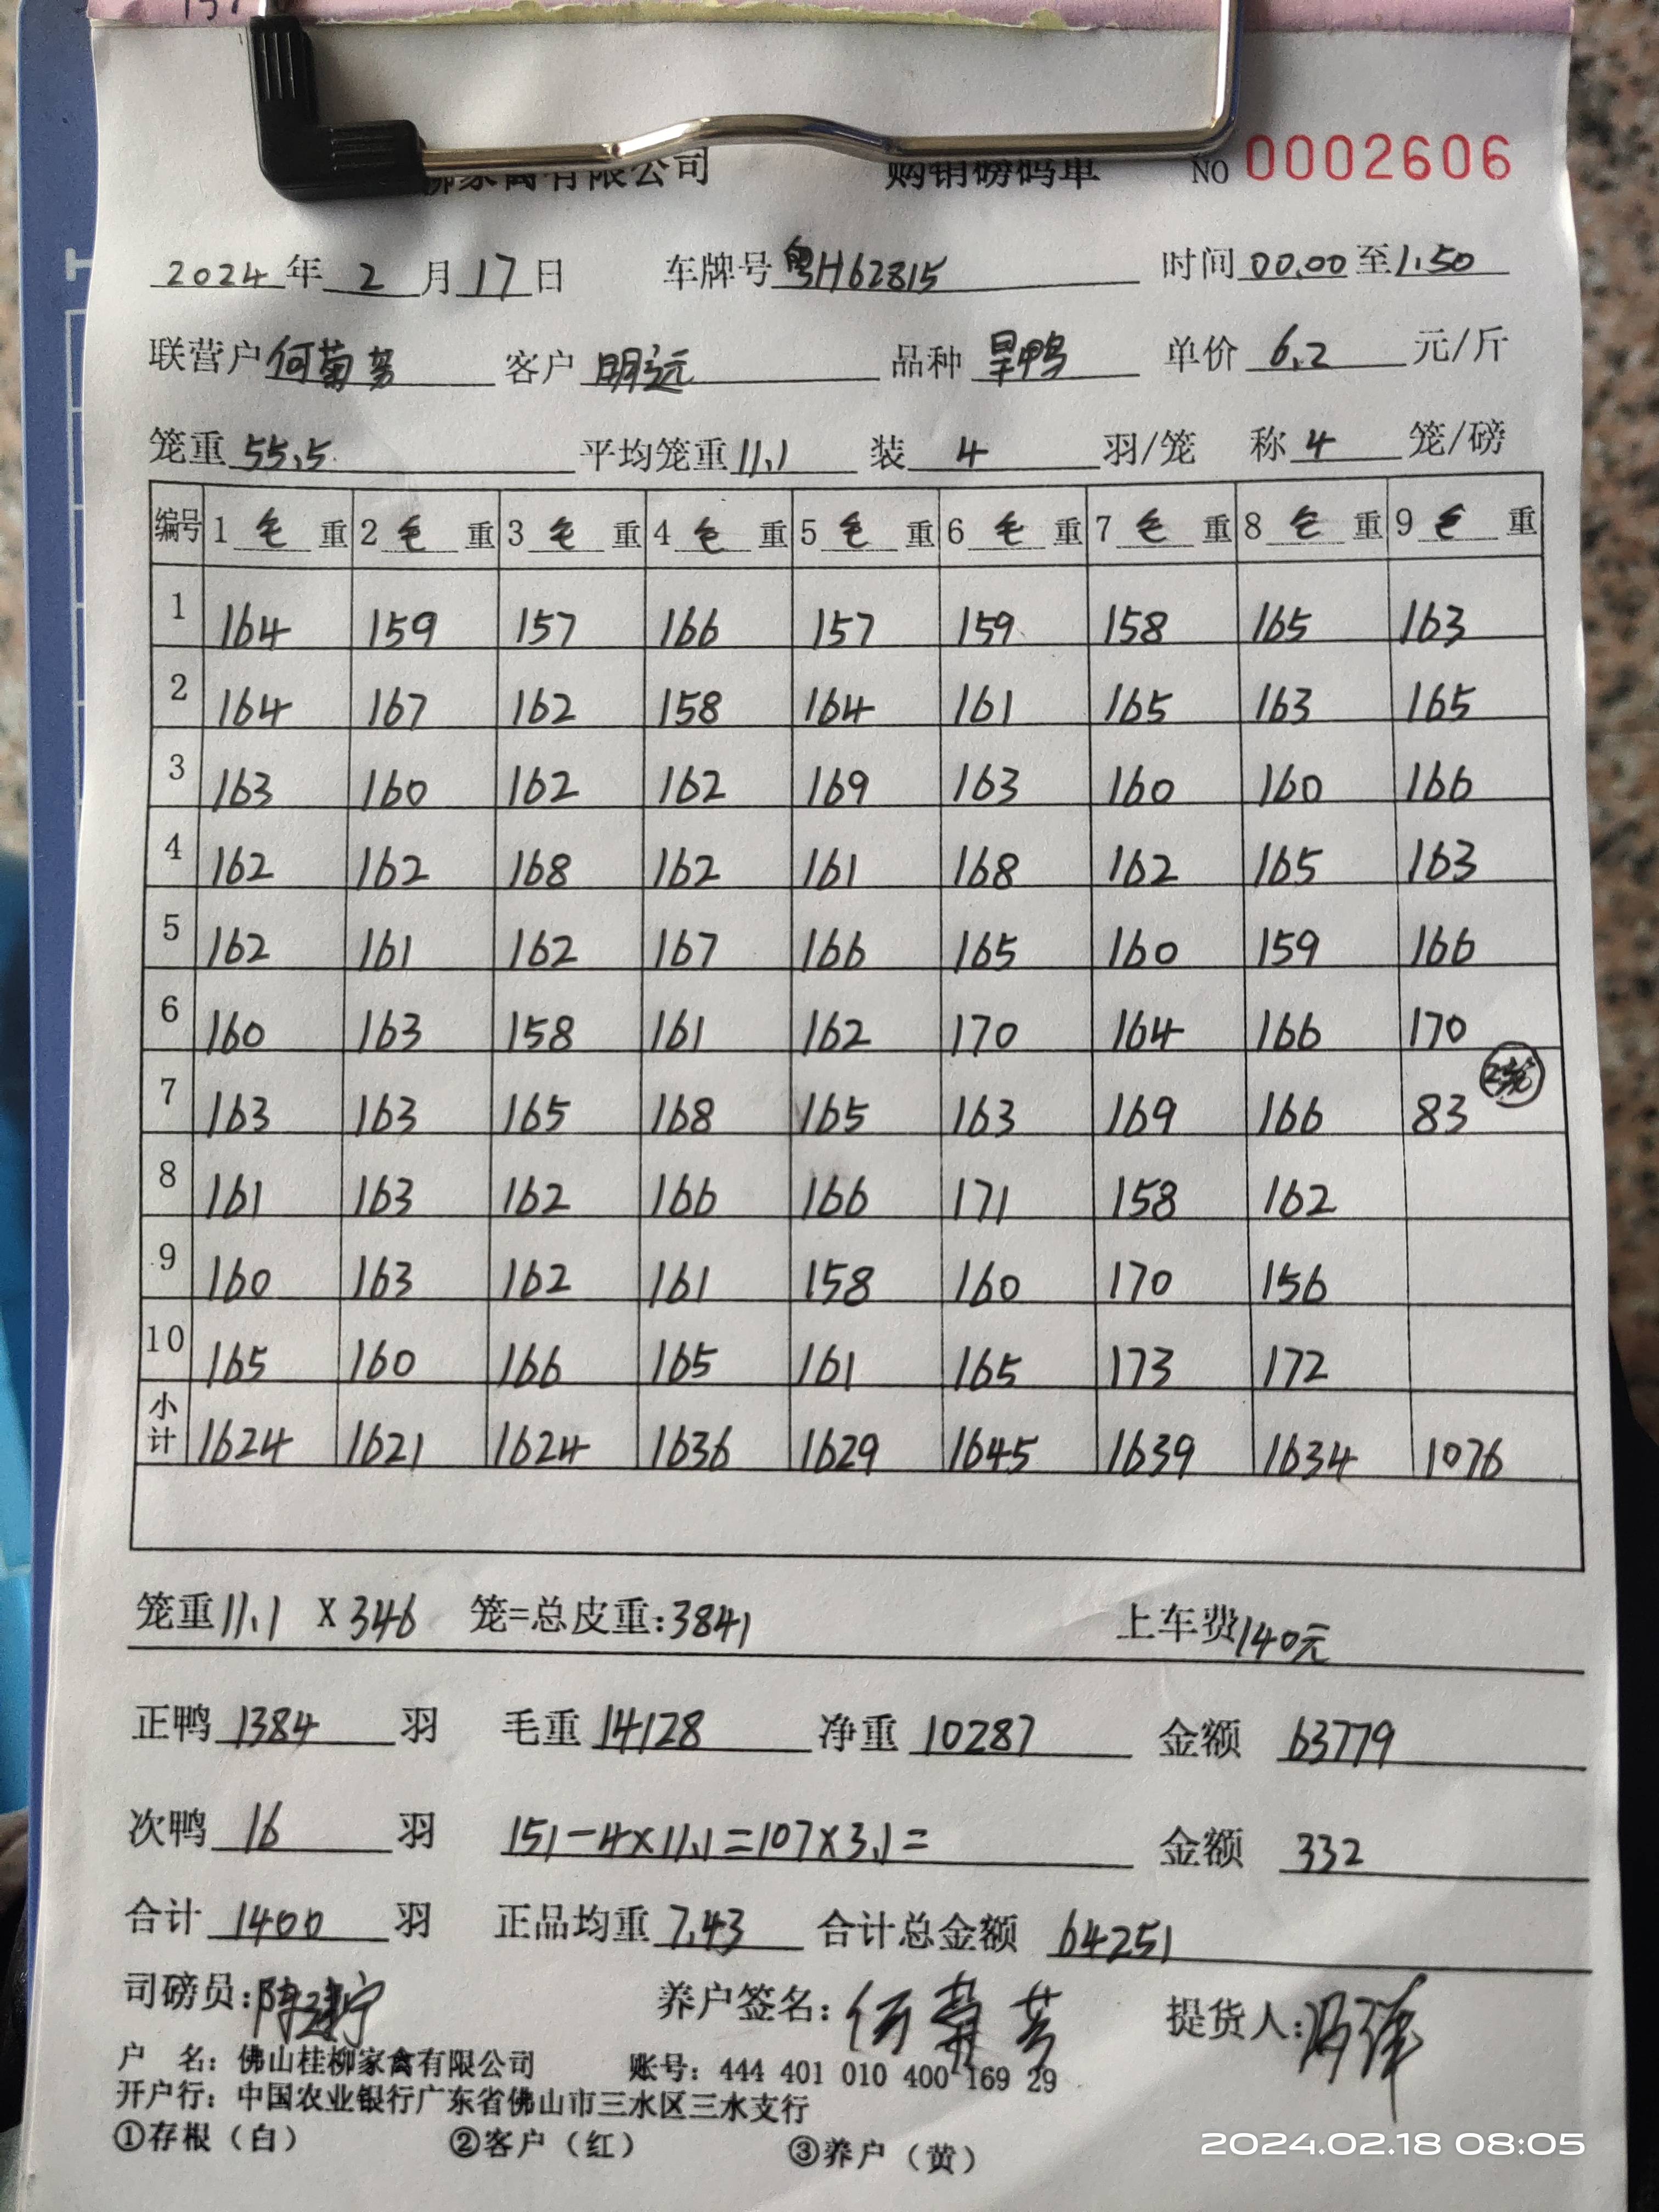 家禽有限公司 购销磅码单 NO 0002606
2024年 2 月 17 日 车牌号 粤H62815 时间 00.00 至 1.50
联营户 何菊芳 客户 明远 品种 旱鸭 单价 6.2 元/斤
笼重 55.5 平均笼重 11.1 装 4 羽/笼 称 4 笼/磅
编号 1 毛 重 2 毛 重 3 毛 重 4 毛 重 5 毛 重 6 毛 重 7 毛 重 8 毛 重 9 毛 重
1 164 159 157 166 157 159 158 165 163
2 164 167 162 158 164 161 165 163 165
3 163 160 162 162 169 163 160 160 166
4 162 162 168 162 161 168 162 165 163
5 162 161 162 167 166 165 160 159 166
6 160 163 158 161 162 170 164 166 170
7 163 163 165 168 165 163 169 166 83 2笼
8 161 163 162 166 166 171 158 162
9 160 163 162 161 158 160 170 156
10 165 160 166 165 161 165 173 172
小计 1624 1621 1624 1636 1629 1645 1639 1634 1076
笼重 11.1 X 346 笼=总皮重:3841 上车费 140元
正鸭 1384 羽 毛重 14128 净重 10287 金额 63779
次鸭 16 羽 151-4×11.1=107×3.1= 金额 332
合计 1400 羽 正品均重 7.43 合计总金额 64251
司磅员: 养户签名:何菊芳 提货人:
户 名：佛山桂柳家禽有限公司 账号：444 401 010 400 169 29
开户行：中国农业银行广东省佛山市三水区三水支行
①存根（白） ②客户（红） ③养户（黄）
2024.02.18 08:05